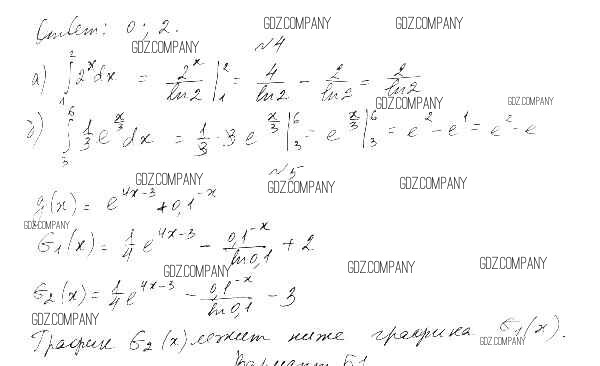 Ответ: 0; 2.
GDZ.COMPANY GDZ.COMPANY
GDZ.COMPANY №4
а) ∫₁² 2ˣdx = 2ˣ/ln2 |₁² = 4/ln2 − 2/ln2 = 2/ln2
GDZ.COMPANY GDZ.COMPANY
б) ∫₃⁶ 1/3 e^(x/3) dx = 1/3 · 3 e^(x/3) |₃⁶ = e^(x/3) |₃⁶ = e² − e¹ = e² − e
№5
GDZ.COMPANY GDZ.COMPANY GDZ.COMPANY
g(x) = e^(4x−3) + 0,1^(−x)
GDZ.COMPANY
G₁(x) = 1/4 e^(4x−3) − 0,1^(−x)/ln0,1 + 2
GDZ.COMPANY GDZ.COMPANY GDZ.COMPANY
G₂(x) = 1/4 e^(4x−3) − 0,1^(−x)/ln0,1 − 3
GDZ.COMPANY
График G₂(x) лежит ниже графика G₁(x).
GDZ.COMPANY
Вариант Б1